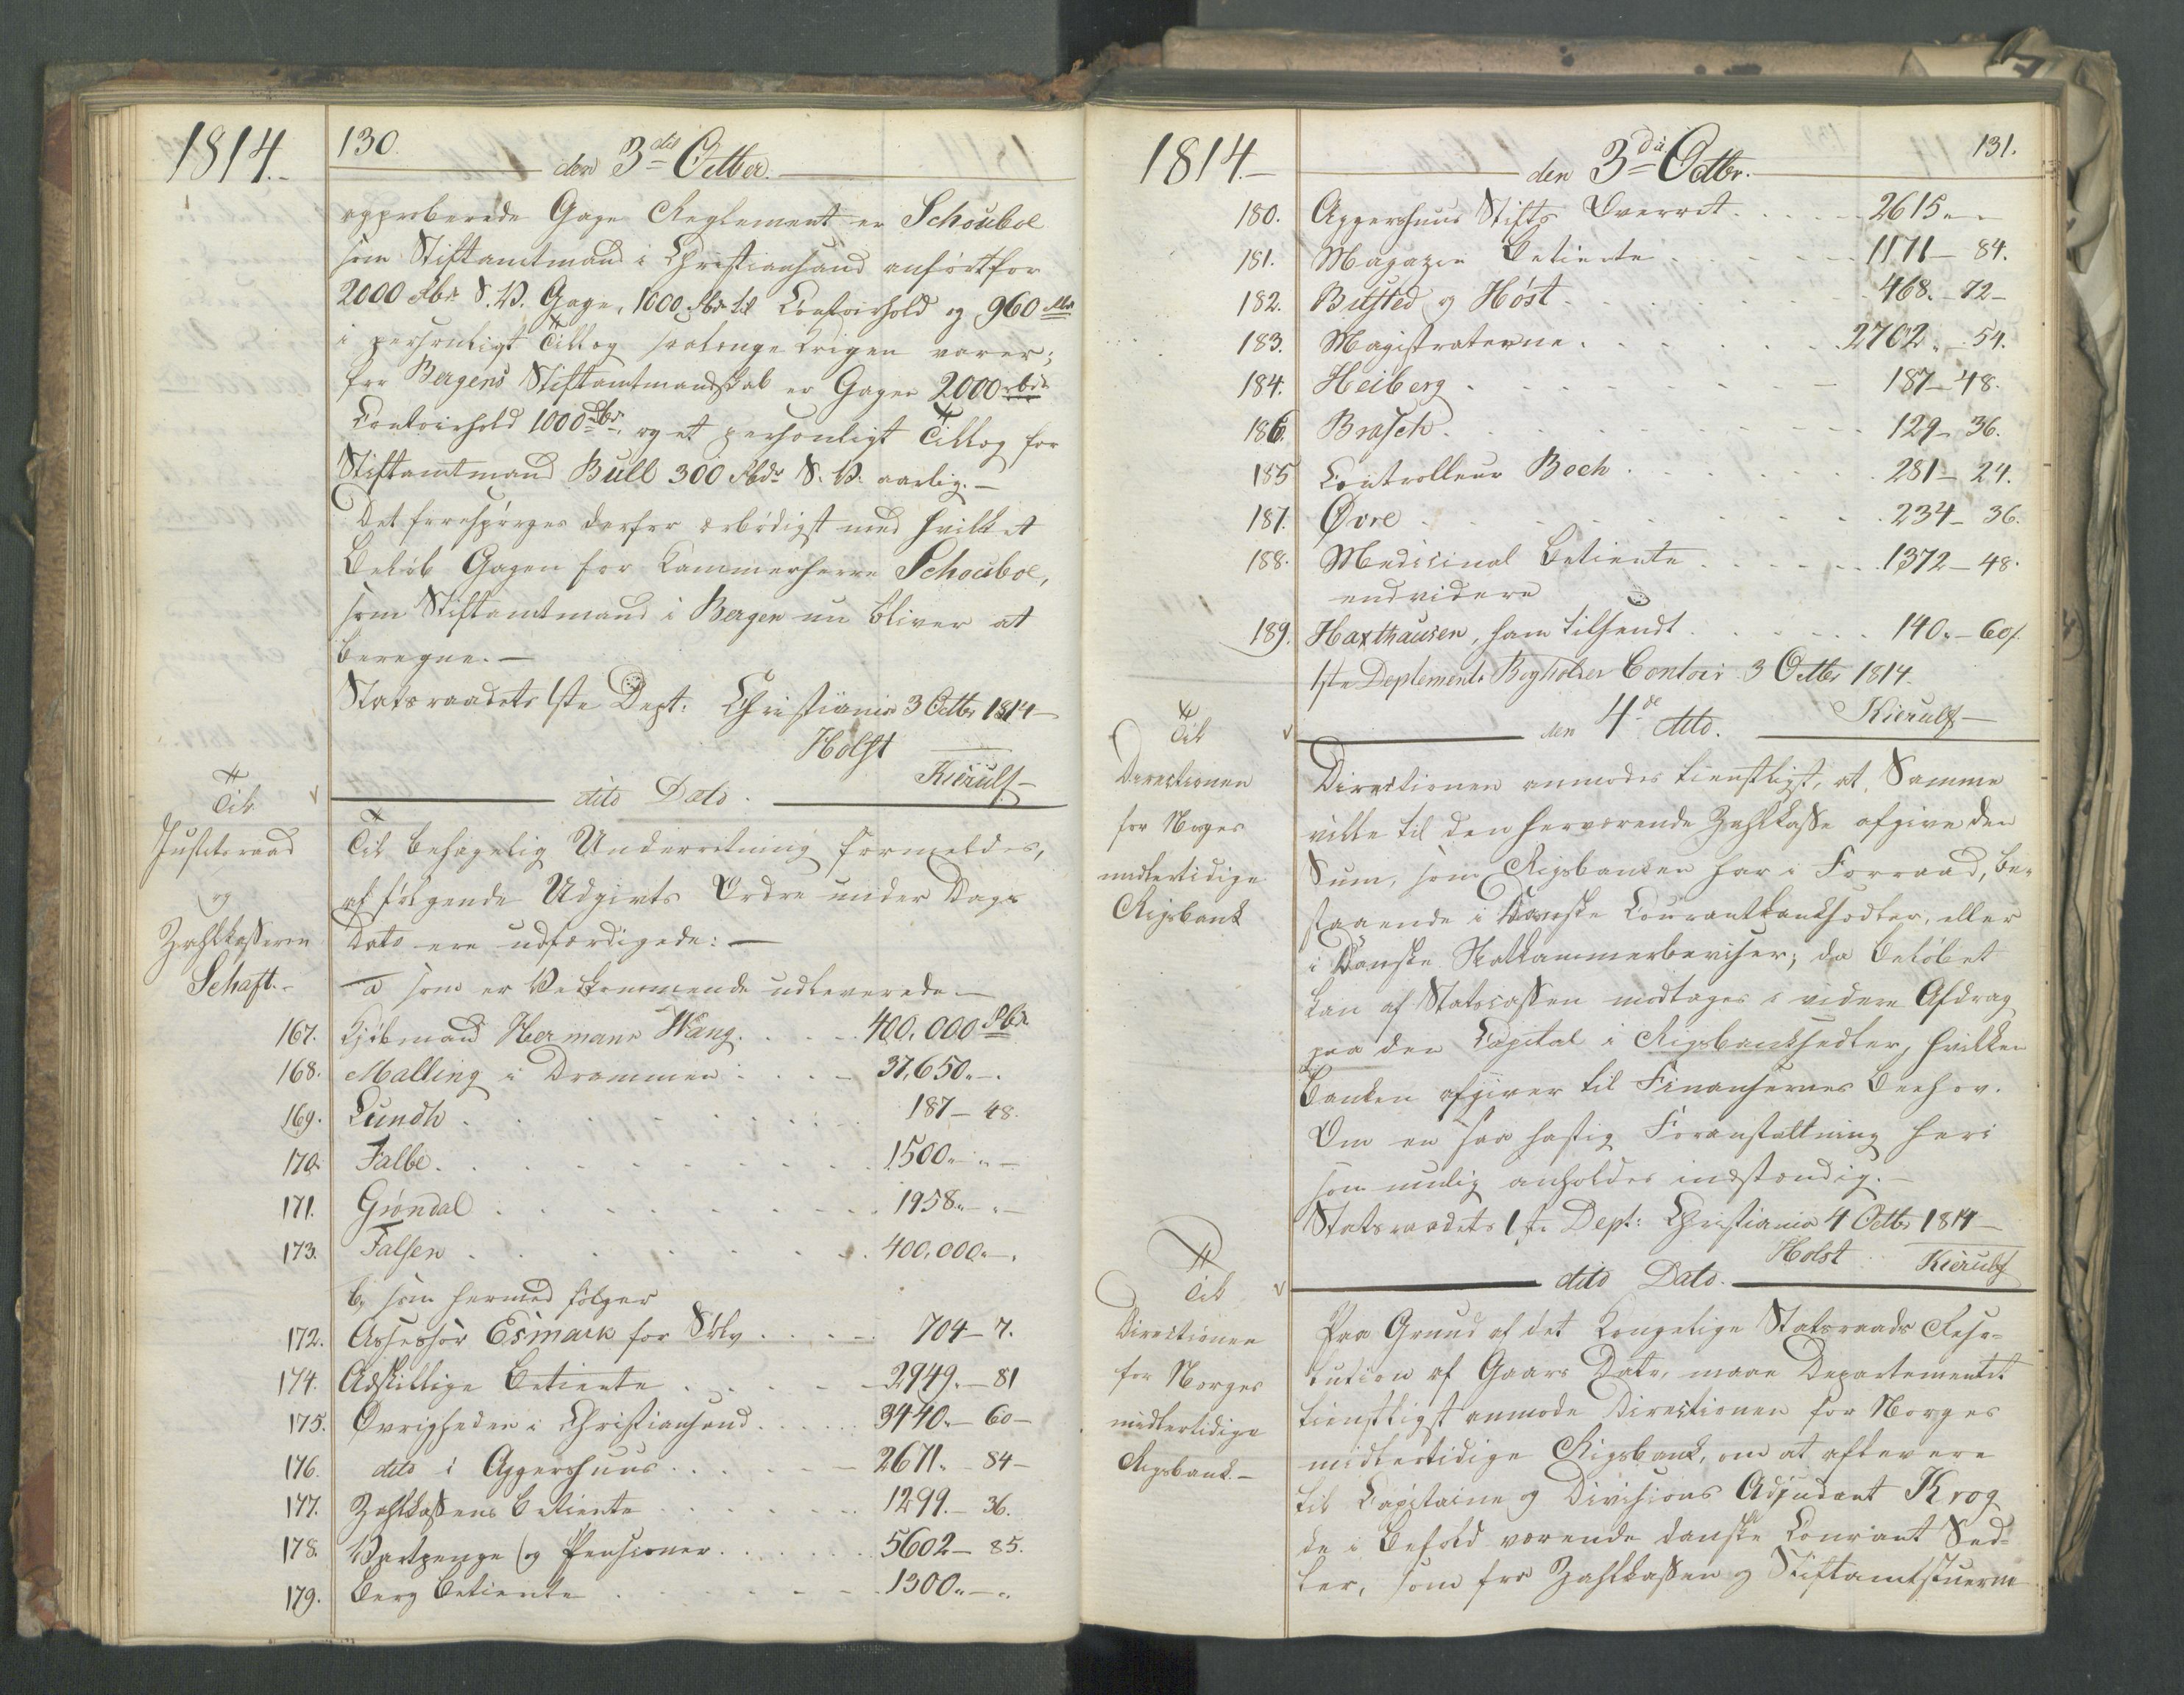 1814.-
130.
den 3die Octber.
approberede Gage Reglement er Schouboe
som Stiftamtmand i Christiansand anført for
2000 Rbd. S.V. Gage, 1000 Rbd. til Contoirhold og 960 Rbd.
i personligt Tillæg saalænge Krigen varer;
for Bergens Stiftamtmandskab er Gagen 2000 rbd.
Contoirhold 1000 Rbd. og et personligt Tillæg for
Stiftamtmand Bull 300 Rbdr S.V. aarlig.-
Det forespørges derfor ærbødigst med hvilket
Beløb Gagen for Kammerherre Schouboe,
som Stiftamtmand i Bergen nu bliver at
beregne.-
Statsraadets 1ste Dept: Christiania 3 Octbr 1814-
Holst
Kierulf-
dito Dato.
Til
Justitsraad
og
Zahlkasserer
Schaft.-
Til behagelig Underretning formeldes,
at følgende Udgivts Ordre under Dags
Dato ere udfærdigede:-
a som er Vedkommende udleverede-
167. Kjøbmand Hermann Wang. . . . 400,000 Rbd.
168. Malling i Drammen . . . . 37,650.-.
169. Lundh . . . . 187- 48.
170. Falbe. . . . . 1500.-.-
171. Grøndal . . . . 1958.-.-
173. Falsen . . . . 400,000.-.
b, som hermed følger
172. Assessor Esmark for Sølv . . . . 704- 7.
174. Adskillige Betiente . . . . 2949.- 81
175. Øvrigheden i Christiansand . . . . 3440.- 60-
176. dito i Aggershuus . . . . 2671.- 84-
177. Zahlkassens Betiente . . . . 1299.- 36.
178. Vartpenge og Pensioner . . . . 5602- 85.
179. Berg Betiente . . . . 1300.-.
1814.-
den 3die Octbr.
131.
180. Aggershuus Stifts Overret . . . . 2615.-.
181. Magazin Betiente . . . . 1171- 84.
182. Busted og Høst . . . . 468.- 72-
183. Magistraterne . . . . 2702.- 54.
184. Heiberg . . . . 187- 48.
186. Brasch . . . . 129- 36.
185 Controlleur Bech . . . . 281- 24.
187. Øvre . . . . 234- 36.
188. Medicinal Betiente . . . . 1372- 48.
endvidere
189. Haxthausen, ham tilsendt . . . . 140.- 60/.
1ste Deptements Bogholder Contoir 3 Octbr 1814.
Kierulf-
den 4de dito.
Til
Directionen
for Norges
midlertidige
Rigsbank
Directionen anmodes tienstligst, at Samme
ville til den herværende Zahlkasse afgive den
Sum, som Rigsbanken har i Forraad, be-
staaende i Danske Courantbanksedler, eller
i Danske Skatkammerbeviser; da Beløbet
kan af Statscassen modtages i videre Afdrag
paa den Capital i Rigsbanksedler, hvilken
Banken afgiver til Finansernes Behov.
Om en saa hastig Foranstaltning heri
som mulig anholdes indstændig.-
Statsraadets 1ste Dept: Christiania 4 Octbr 1814-
Holst
Kierulf
dito Dato.
Til
Directionen
for Norges
midlertidige
Rigsbank.-
Paa Grund af det Kongelige Statsraads Reso-
lution af Gaars Dato, maae Departementet
tienstligst anmode Directionen for Norges
midlertidige Rigsbank, om at aflevere
til Capitaine og Divisions Adjudant Krog
de i Behold værende danske Courant Sed-
ler, som fra Zahlkassen og Stiftamtstuerne